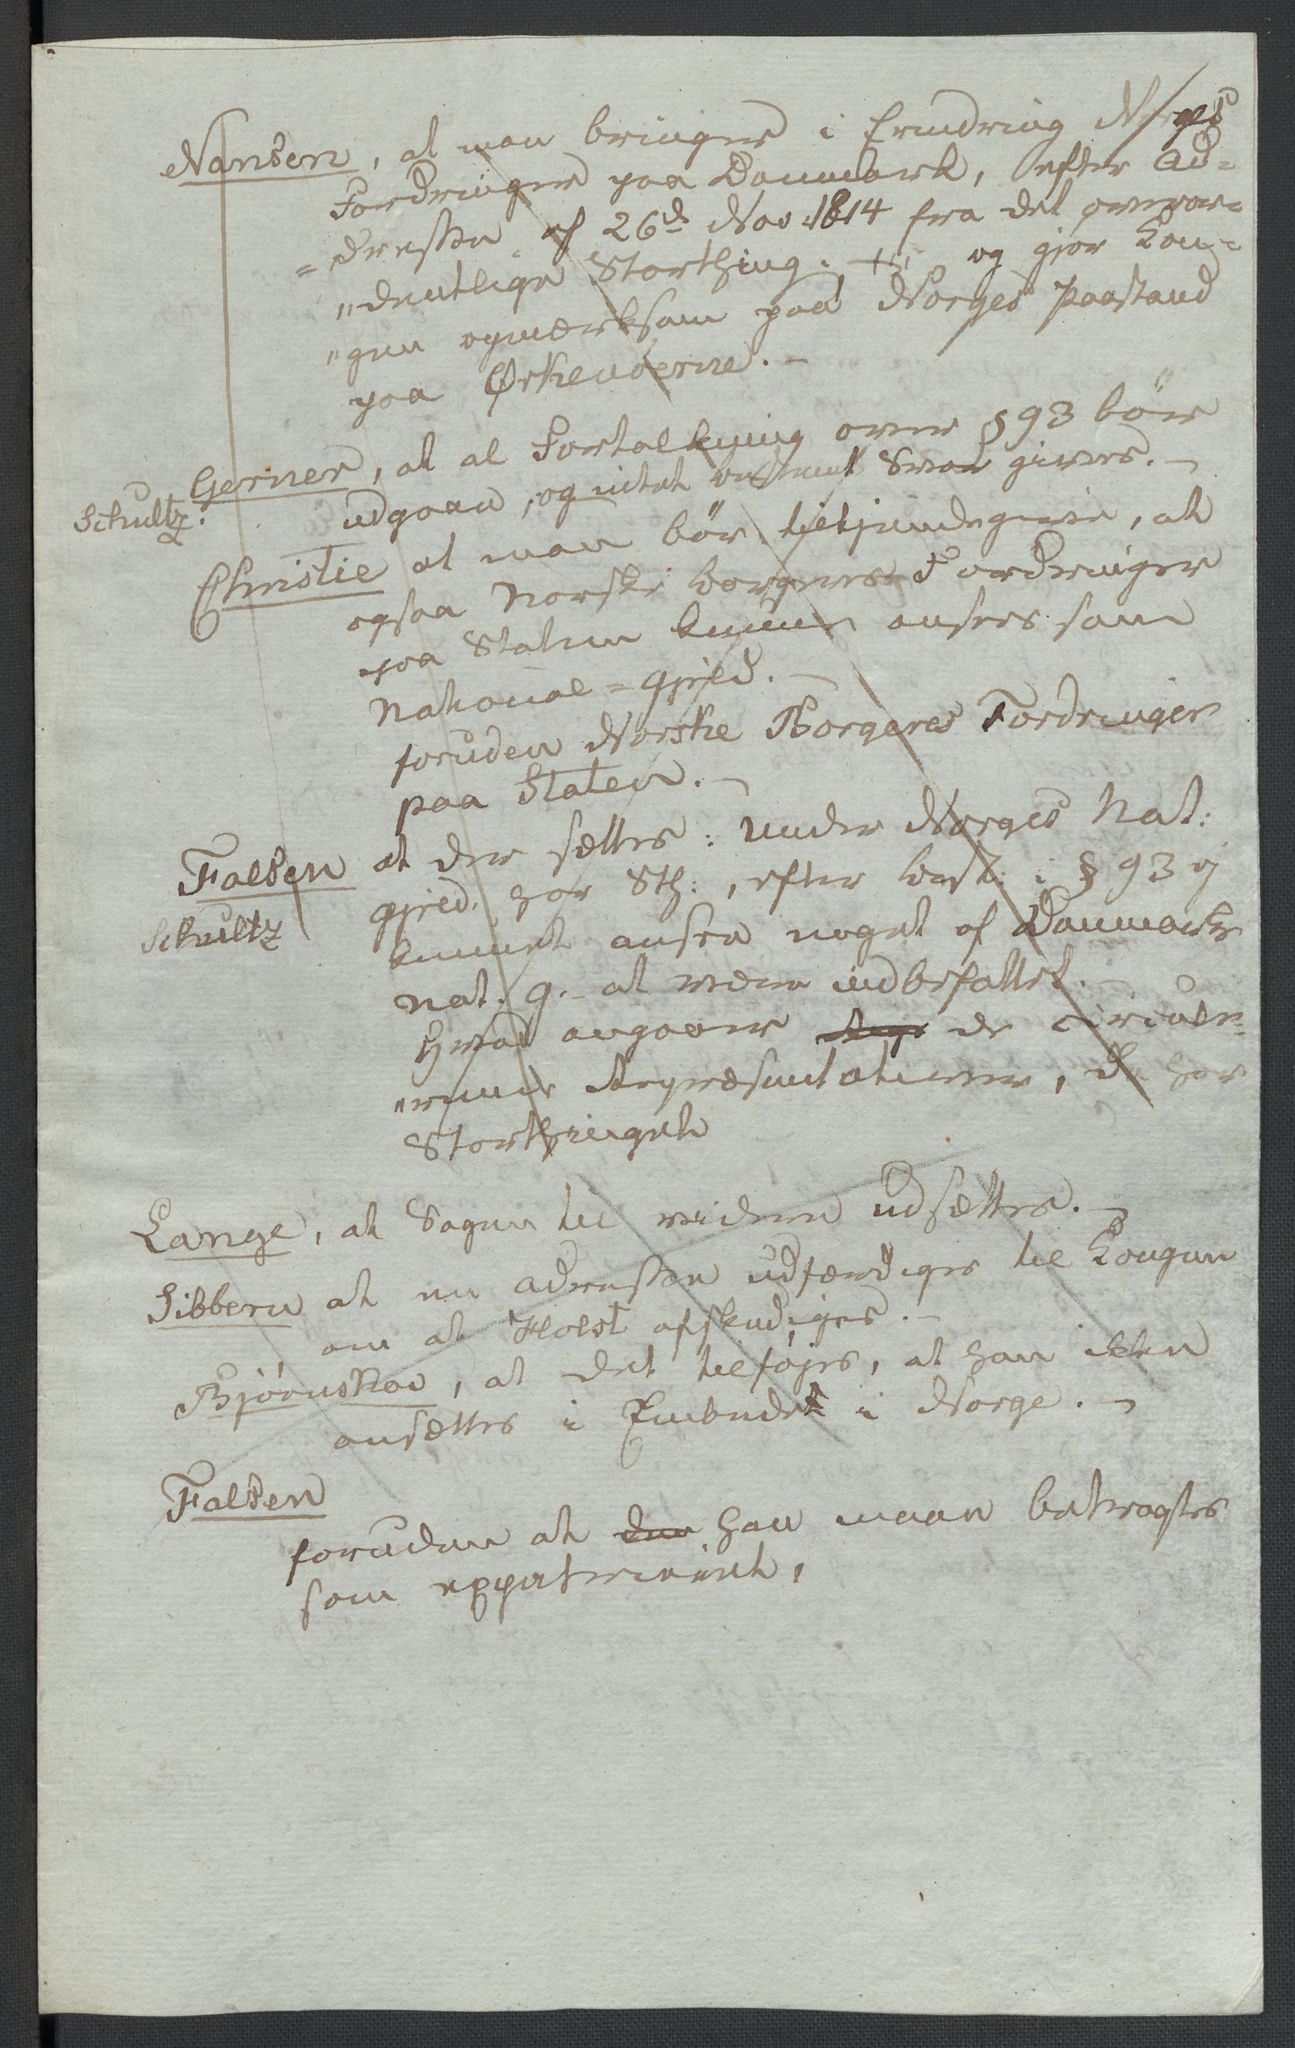 Nansen, at man bringer i Erindring Norges
Fordringer paa Danmark, efter Ad=
=dressen af 26d Nov 1814 fra det overor=
"dentlige Storthing. + og gjør Kon=
"gen opmærksom paa Norges Paastand
paa Ørkenøerne. -
Gerner, at al Fortolkning over § 93 bör
Schultz.
udgaae, og intet bestemt Svar gives. -
Christie at man bör tilkjendegive, at
ogsaa Norske borgeres Fordringer
paa Staten kunne ansees som
National=gjeld. -
foruden Norske Borgeres Fordringer
paa Staten. -
Falsen at der sættes: under Norges Nat:
gjeld. har Sth:, efter best: i § 93 ej
Schultz
kunnet ansee noget af Danmarks
Nat. g. at være indbefattet. -
Hvad angaaer de circule=
"rende Repræsentativer, har
Storthinget
Lange, at Sagen til videre udsættes. -
Sibbern at en adresse udfærdiges til Kongen
om at Holst afskediges. -
Bjørnskau, at det tilföjes, at han ikke
ansættes i Embedet i Norge. -
Falsen
foruden at den han maae betragtes
som expatrieret,